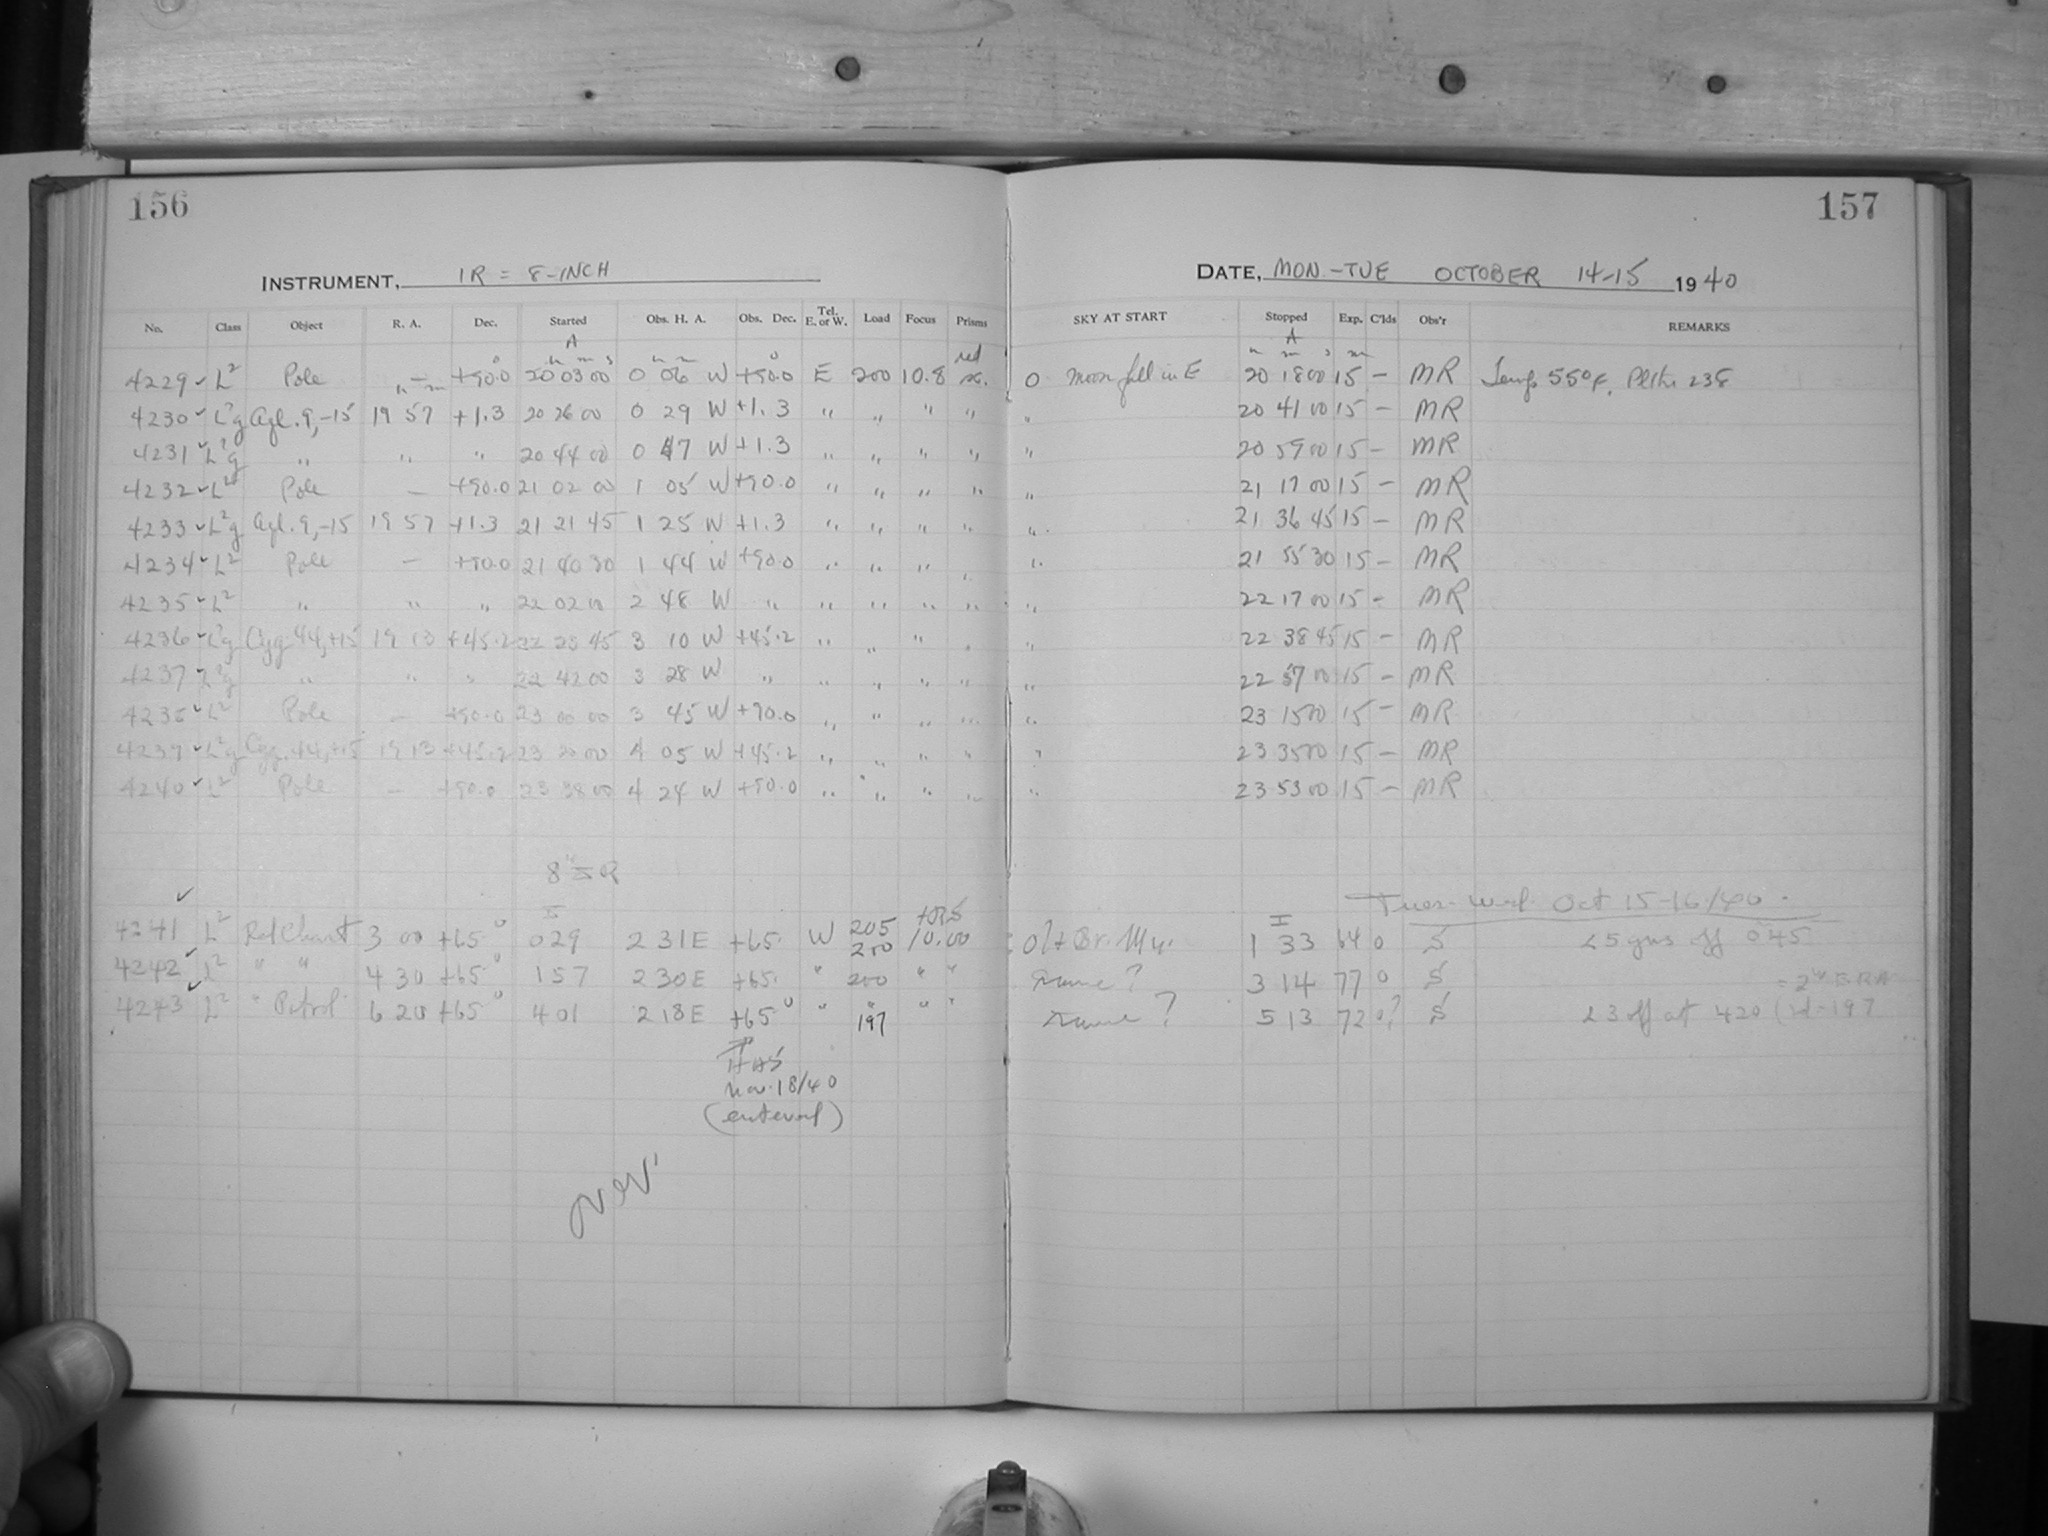 156
157
INSTRUMENT, IR = 8-INCH
DATE, MON-TUE OCTOBER 14-15 1940
No. Class Object R. A. Dec. Started Obs. H. A. Obs. Dec. Tel. E. or W. Load Focus Prisms SKY AT START Stopped Exp. C'lds Obs'r REMARKS
A A
h m s h m ° red h m s m
4229 ✓ L² Pole — +90.0 20 03 00 0 06 W +90.0 E 200 10.8 0 Moon full in E 20 18 00 15 — MR Temp 55°F.
h m
4230 ✓ L²g Aql. 9, -15 19 57 +1.3 20 26 00 0 29 W +1.3 " " " " " 20 41 00 15 — MR
4231 ✓ L²g " " " 20 44 00 0 47 W +1.3 " " " " " 20 59 00 15 — MR
4232 ✓ L² Pole — +90.0 21 02 00 1 05 W +90.0 " " " " " 21 17 00 15 — MR
4233 ✓ L²g Aql. 9, -15 19 57 +1.3 21 21 45 1 25 W +1.3 " " " " " 21 36 45 15 — MR
4234 ✓ L² Pole — +90.0 21 40 30 1 44 W +90.0 " " " " " 21 55 30 15 — MR
4235 ✓ L² " " " 22 02 00 2 48 W " " " " " " 22 17 00 15 — MR
4236 ✓ L²g Cyg. 44, +15 19 13 +45.2 22 23 45 3 10 W +45.2 " " " " " 22 38 45 15 — MR
4237 ✓ L²g " " " 22 42 00 3 28 W " " " " " " 22 57 00 15 — MR
4238 ✓ L² Pole — +90.0 23 00 00 3 45 W +90.0 " " " " " 23 15 00 15 — MR
4239 ✓ L²g Cyg. 44, +15 19 13 +45.2 23 20 00 4 05 W +45.2 " " " " " 23 35 00 15 — MR
4240 ✓ L² Pole — +90.0 23 38 00 4 24 W +90.0 " " " " " 23 53 00 15 — MR
Tues-Wed Oct 15-16/40.
I I
4241 ✓ L² 3 00 +65° 0 29 2 31 E +65. W 205 200 10.00 1 33 64 0 S 25 off 0 45
4242 ✓ L² " " 4 30 +65° 1 57 2 30 E +65. " 200 " " Same? 3 14 77 0 S
4243 ✓ L² " Patrol 6 20 +65° 4 01 2 18 E +65° " " 197 " " Same? 5 13 72 0? S 23 off at 4 20 (ld = 197
HAS
Nov. 18/40
(entered)
over